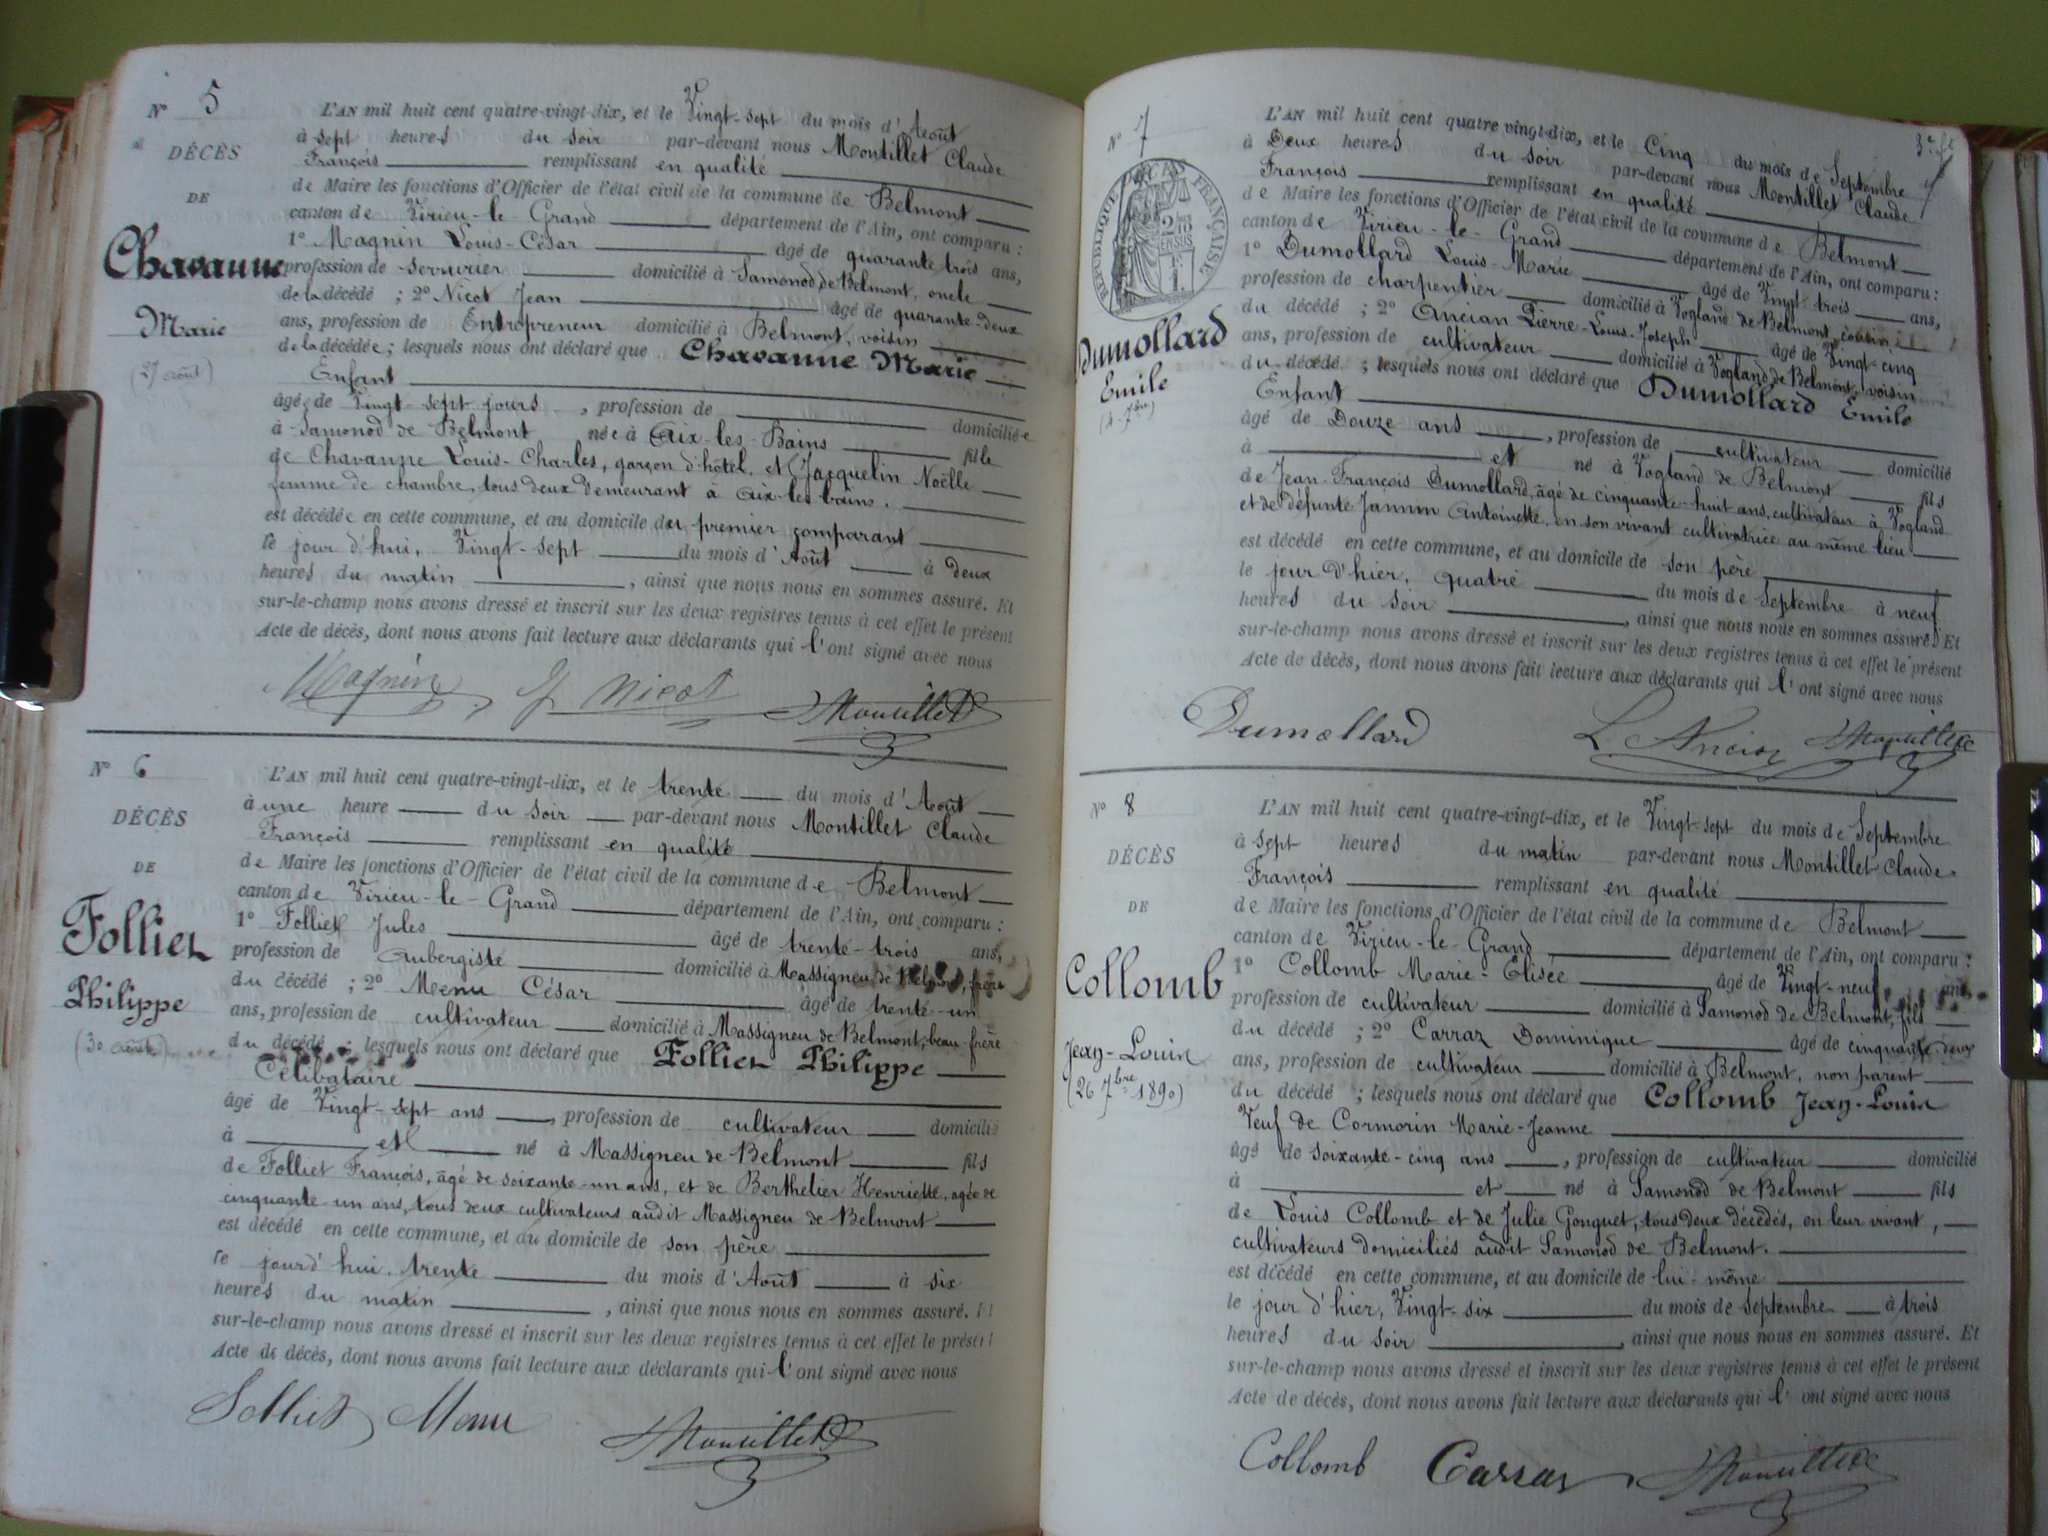 N° 5
DÉCÈS
DE
Chavanne
Marie
(27 août)
L'AN mil huit cent quatre-vingt-dix, et le Vingt-sept du mois d'Août
à sept heures du soir par-devant nous Montillet Claude
François remplissant en qualité
de Maire les fonctions d'Officier de l'état civil de la commune de Belmont
canton de Virieu-le-Grand département de l'Ain, ont comparu :
1° Magnin Louis-César âgé de quarante trois ans,
profession de serrurier domicilié à Samonod de Belmont, oncle
de la décédé ; 2° Nicot Jean âgé de quarante-deux
ans, profession de Entrepreneur domicilié à Belmont, voisin
de la décédée ; lesquels nous ont déclaré que Chavanne Marie
Enfant
âgé de Vingt-sept jours, profession de domiciliée
à Samonod de Belmont née à Aix-les-Bains fille
de Chavanne Louis-Charles, garçon d'hôtel, et Jacquelin Noëlle
femme de chambre, tous deux demeurant à Aix-les-bains.
est décédée en cette commune, et au domicile du premier comparant
le jour d'hui, Vingt-sept du mois d'Août à deux
heures du matin, ainsi que nous nous en sommes assuré. Et
sur-le-champ nous avons dressé et inscrit sur les deux registres tenus à cet effet le présent
Acte de décès, dont nous avons fait lecture aux déclarants qui l'ont signé avec nous
Magnin J Nicot Montillet
N° 6
DÉCÈS
DE
Folliet
Philippe
(30 août)
L'AN mil huit cent quatre-vingt-dix, et le trente du mois d'Août
à une heure du soir par-devant nous Montillet Claude
François remplissant en qualité
de Maire les fonctions d'Officier de l'état civil de la commune de Belmont
canton de Virieu-le-Grand département de l'Ain, ont comparu :
1° Folliet Jules âgé de trente-trois ans,
profession de Aubergiste domicilié à Massigneu de Belmont, frère
du décédé ; 2° Menu César âgé de trente-un
ans, profession de cultivateur domicilié à Massigneu de Belmont, beau-frère
du décédé ; lesquels nous ont déclaré que Folliet Philippe
Célibataire
âgé de Vingt-sept ans, profession de cultivateur domicilié
à et né à Massigneu de Belmont fils
de Folliet François, âgé de soixante-un ans, et de Berthelier Henriette, agée de
cinquante-un ans, tous deux cultivateurs audit Massigneu de Belmont
est décédé en cette commune, et au domicile de son père
le jourd'hui, trente du mois d'Août à six
heures du matin, ainsi que nous nous en sommes assuré. Et
sur-le-champ nous avons dressé et inscrit sur les deux registres tenus à cet effet le présent
Acte de décès, dont nous avons fait lecture aux déclarants qui l'ont signé avec nous
Folliet Menu Montillet
N° 7
RÉPUBLIQUE FRANÇAISE
2/10 EN SUS
Dumollard
Emile
(4 7bre)
L'AN mil huit cent quatre vingt-dix, et le Cinq du mois de Septembre
à Deux heures du soir par-devant nous Montillet Claude
François remplissant en qualité
de Maire les fonctions d'Officier de l'état civil de la commune de Belmont
canton de Virieu-le-Grand département de l'Ain, ont comparu :
1° Dumollard Louis-Marie âgé de Vingt-trois ans,
profession de charpentier domicilié à Vogland de Belmont, cousin
du décédé ; 2° Ancian Pierre-Louis-Joseph âgé de Vingt-cinq
ans, profession de cultivateur domicilié à Vogland de Belmont, voisin
du décédé ; lesquels nous ont déclaré que Dumollard Emile
Enfant
âgé de Douze ans, profession de cultivateur domicilié
à et né à Vogland de Belmont fils
de Jean-François Dumollard, âgé de cinquante-huit ans, cultivateur à Vogland
et de défunte Jannin Antoinette, en son vivant cultivatrice au même lieu
est décédé en cette commune, et au domicile de son père
le jour d'hier, quatre du mois de Septembre à neuf
heures du soir, ainsi que nous nous en sommes assuré. Et
sur-le-champ nous avons dressé et inscrit sur les deux registres tenus à cet effet le présent
Acte de décès, dont nous avons fait lecture aux déclarants qui l'ont signé avec nous
Dumollard L. Ancian Montillet
N° 8
DÉCÈS
DE
Collomb
Jean-Louis
(26 7bre 1890)
L'AN mil huit cent quatre-vingt-dix, et le Vingt-sept du mois de Septembre
à sept heures du matin par-devant nous Montillet Claude
François remplissant en qualité
de Maire les fonctions d'Officier de l'état civil de la commune de Belmont
canton de Virieu-le-Grand département de l'Ain, ont comparu :
1° Collomb Marie-Elisée âgé de Vingt-neuf ans,
profession de cultivateur domicilié à Samonod de Belmont, fils
du décédé ; 2° Carraz Dominique âgé de cinquante-deux
ans, profession de cultivateur domicilié à Belmont, non parent
du décédé ; lesquels nous ont déclaré que Collomb Jean-Louis
Veuf de Cormorin Marie-Jeanne
âgé de soixante-cinq ans, profession de cultivateur domicilié
à et né à Samonod de Belmont fils
de Louis Collomb et de Julie Gonguet, tous deux décédés, en leur vivant,
cultivateurs domiciliés audit Samonod de Belmont.
est décédé en cette commune, et au domicile de lui-même
le jour d'hier, Vingt-six du mois de septembre à trois
heures du soir, ainsi que nous nous en sommes assuré. Et
sur-le-champ nous avons dressé et inscrit sur les deux registres tenus à cet effet le présent
Acte de décès, dont nous avons fait lecture aux déclarants qui l'ont signé avec nous
Collomb Carraz Montillet